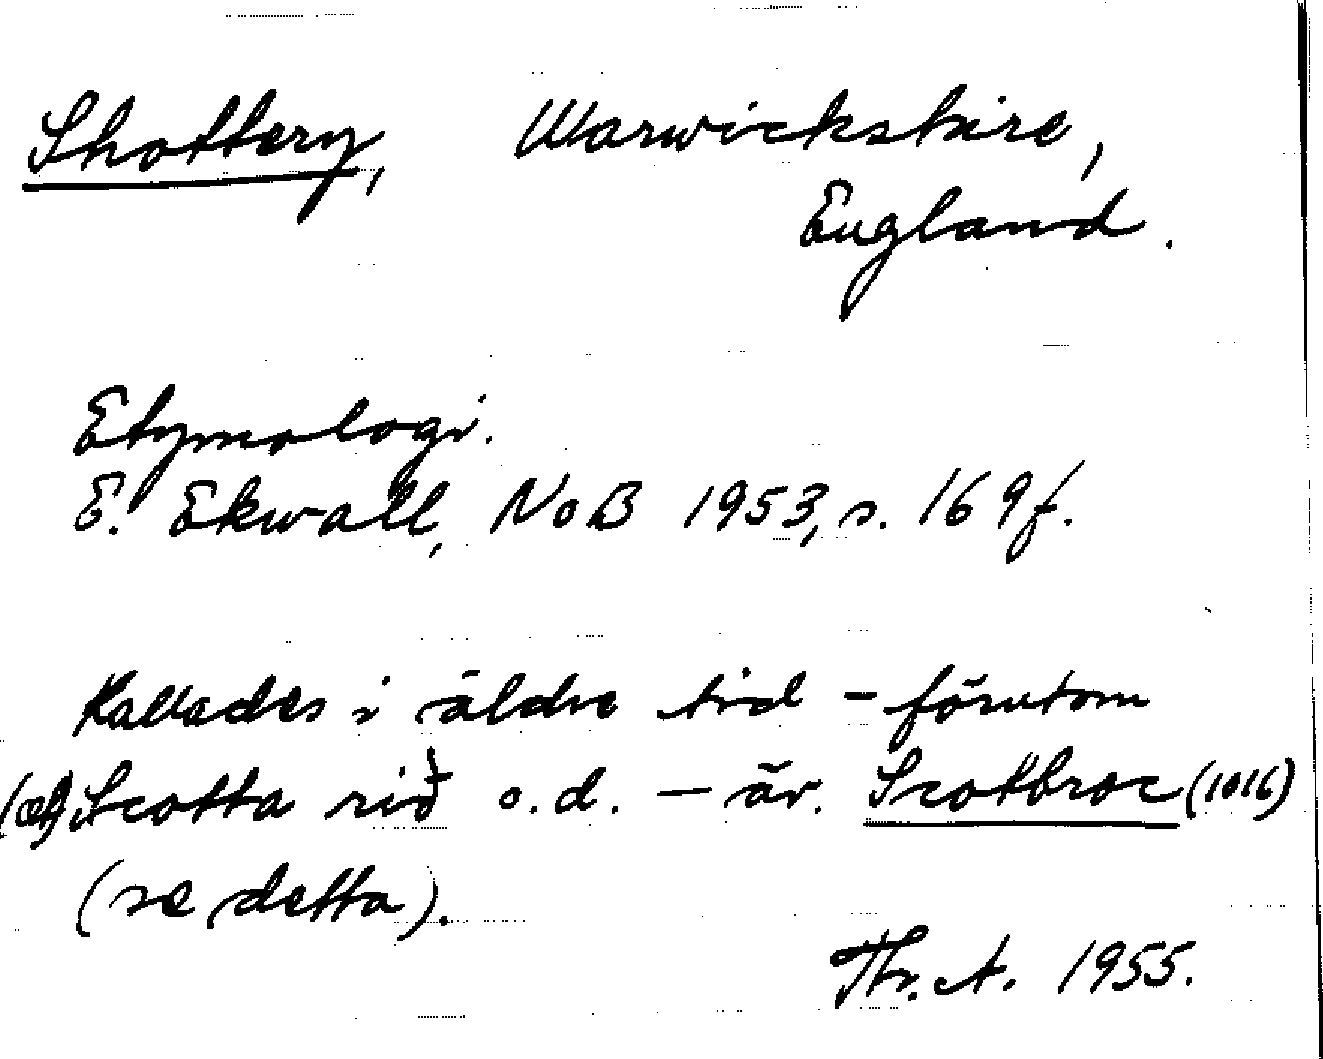 Shottery, Warwickshire,
England.
Etymologi.
E. Ekwall, NoB 1953, s. 169 f.
Kallades i äldre tid - förutom
Scotta rið o.d. - äv. Scotbroc (1016)
(se detta).
Thr. A. 1955.